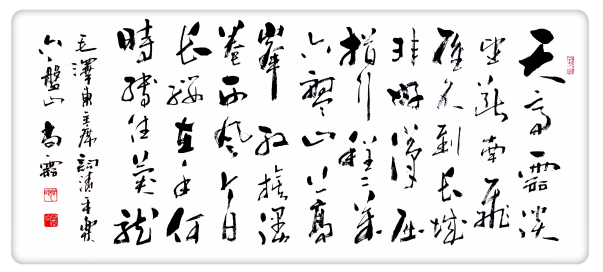 天高雲淡
望斷南飛
雁不到長城
非好漢屈
指行程二萬
六盤山上高
峰紅旗漫
卷西風今日
長纓在手何
時縛住蒼龍
毛澤東主席詞清平樂
六盤山